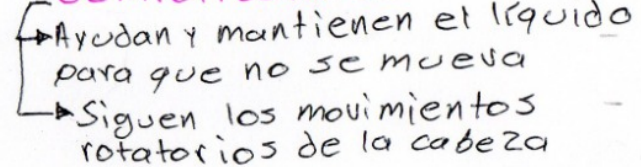 Ayudan y mantienen el líquido
para que no se mueva
Siguen los movimientos
rotatorios de la cabeza